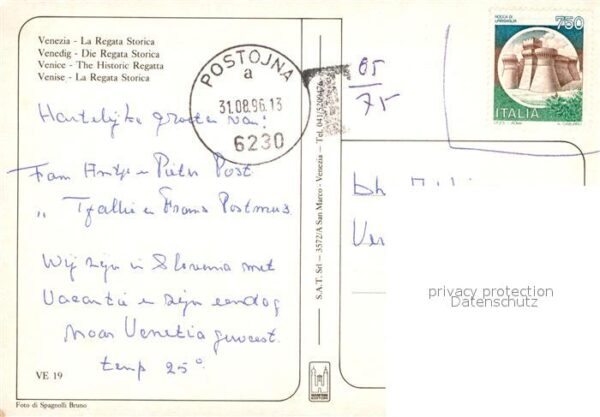 Venezia - La Regata Storica
Venedig - Die Regata Storica
Venice - The Historic Regatta
Venise - La Regata Storica
POSTOJNA
a
31.08.96.13
6230
Hartelijke groeten van:
Fam Antje en Pieter Post
" en Frans Postmus
Wij zijn in Slovenia met
vacantie en zijn een dag
naar Venetia geweest.
temp 25°
VE 19
Foto di Spagnolli Bruno
S.A.T. Srl - 3572/A San Marco - Venezia - Tel. 041/
65
75
ROCCA DI URBISAGLIA
750
ITALIA
privacy protection
Datenschutz